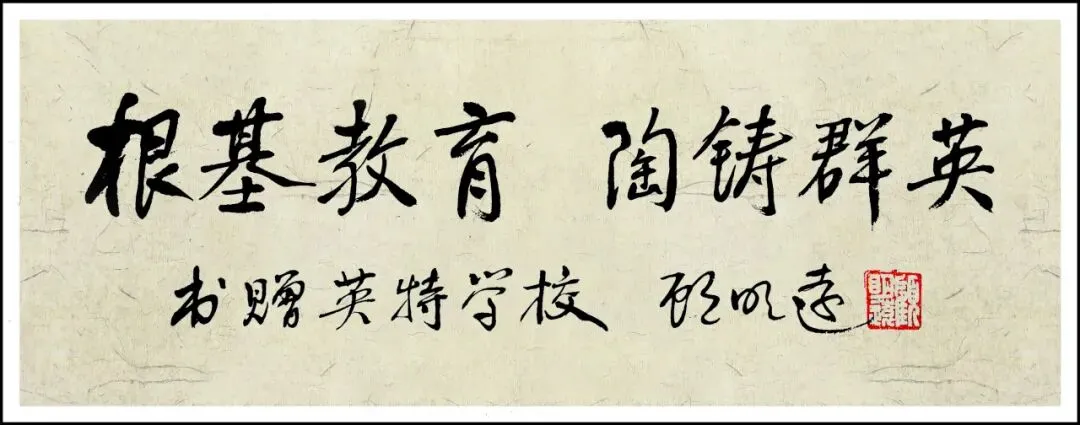 根基教育 陶铸群英
书赠英特学校 顾明远
顾明远